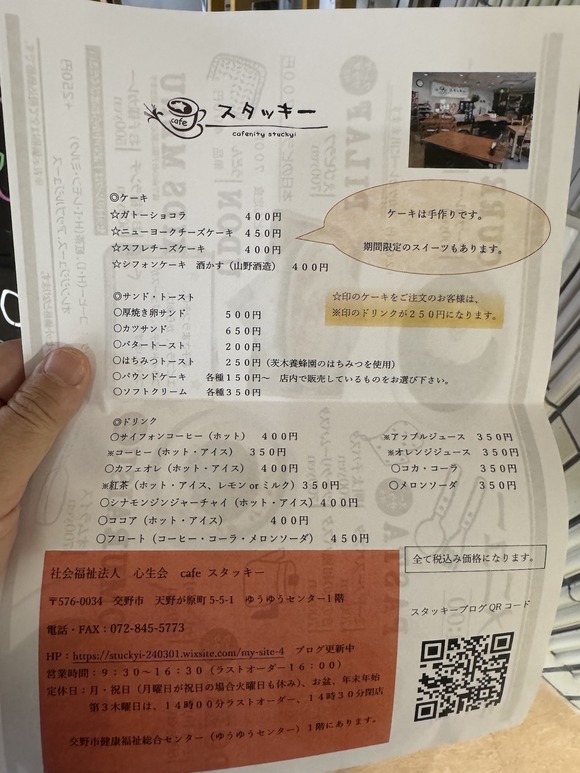 cafe
スタッキー
cafenity stuckyi
◎ケーキ
☆ガトーショコラ 400円
☆ニューヨークチーズケーキ 450円
☆スフレチーズケーキ 400円
☆シフォンケーキ 酒かす（山野酒造） 400円
ケーキは手作りです。
期間限定のスイーツもあります。
☆印のケーキをご注文のお客様は、
※印のドリンクが250円になります。
◎サンド・トースト
〇厚焼き卵サンド 500円
〇カツサンド 650円
〇バタートースト 200円
〇はちみつトースト 250円（茨木養蜂園のはちみつを使用）
〇パウンドケーキ 各種150円～ 店内で販売しているものをお選び下さい。
〇ソフトクリーム 各種350円
◎ドリンク
〇サイフォンコーヒー（ホット） 400円
※コーヒー（ホット・アイス） 350円
〇カフェオレ（ホット・アイス） 400円
※紅茶（ホット・アイス、レモン or ミルク）350円
〇シナモンジンジャーチャイ（ホット・アイス）400円
〇ココア（ホット・アイス） 400円
〇フロート（コーヒー・コーラ・メロンソーダ） 450円
※アップルジュース 350円
※オレンジジュース 350円
〇コカ・コーラ 350円
〇メロンソーダ 350円
全て税込み価格になります。
社会福祉法人 心生会 cafe スタッキー
〒576-0034 交野市 天野が原町 5-5-1 ゆうゆうセンター1階
電話・FAX：072-845-5773
HP：https://stuckyi-240301.wixsite.com/my-site-4 ブログ更新中
営業時間：9：30～16：30（ラストオーダー16：00）
定休日：月・祝日（月曜日が祝日の場合火曜日も休み）、お盆、年末年始
第3木曜日は、14時00分ラストオーダー、14時30分閉店
交野市健康福祉総合センター（ゆうゆうセンター）1階にあります。
スタッキーブログ QR コード